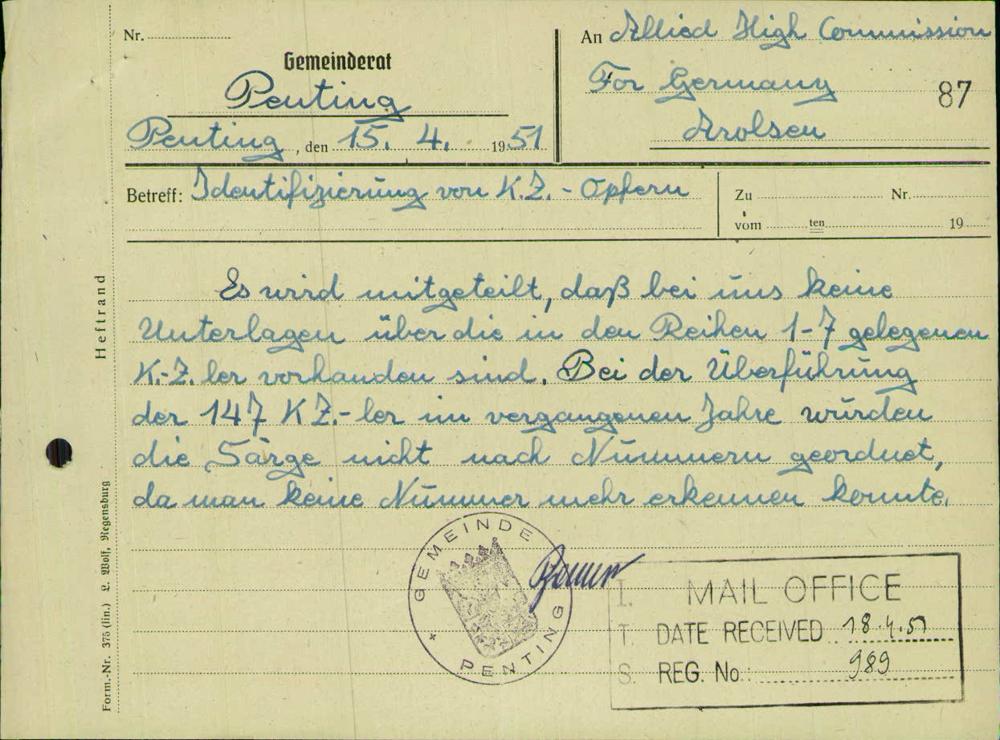 Nr.
Gemeinderat
Penting
Penting, den 15. 4. 1951
An Allied High Commission
For Germany
87
Arolsen
Betreff: Identifizierung von K.Z.-Opfern
Zu Nr.
vom ten 19
Es wird mitgeteilt, daß bei uns keine
Unterlagen über die in den Reihen 1-7 gelegenen
K.-Z.ler vorhanden sind. Bei der Überführung
der 147 KZ.-ler im vergangenen Jahre wurden
die Särge nicht nach Nummern geordnet,
da man keine Nummer mehr erkennen konnte.
GEMEINDE
PENTING
I. MAIL OFFICE
T. DATE RECEIVED 18.4.51
S. REG. No.: 989
Heftrand
Form.-Nr. 375 (lin.) L. Wolf, Regensburg